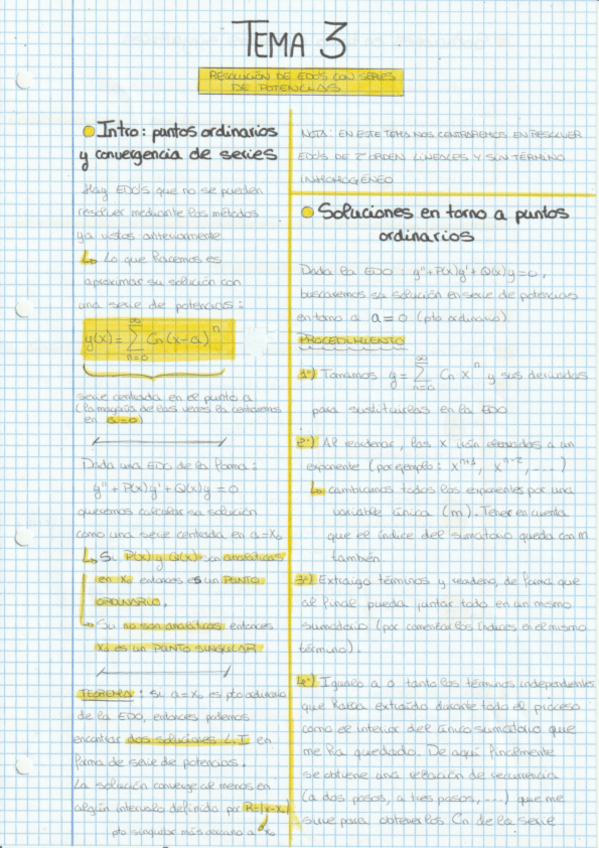 TEMA 3
RESOLUCIÓN DE EDOS CON SERIES
DE POTENCIAS
Intro: puntos ordinarios
y convergencia de series
Hay EDO's que no se pueden
resolver mediante los métodos
ya vistos anteriormente
↳ Lo que hacemos es
aproximar su solución con
una serie de potencias:
y(x) = ∑ Cn (x-a)^n
n=0
∞
serie centrada en el punto a
(la mayoría de las veces la centraremos
en a=0)
Dada una EDO de la forma:
y'' + P(x)y' + Q(x)y = 0
queremos calcular su solución
como una serie centrada en a=x₀
↳ Si P(x) y Q(x) son analíticas
en x₀ entonces es un PUNTO
ORDINARIO.
↳ Si no son analíticas entonces
x₀ es un PUNTO SINGULAR
TEOREMA: Si a=x₀ es pto ordinario
de la EDO, entonces podemos
encontrar dos soluciones L.I en
forma de serie de potencias.
La solución converge al menos en
algún intervalo definido por R=|x-x₀|
pto singular más cercano a x₀
NOTA: EN ESTE TEMA NOS CENTRAREMOS EN RESOLVER
EDO'S DE 2º ORDEN LINEALES Y SIN TÉRMINO
INHOMOGÉNEO
Soluciones en torno a puntos
ordinarios
Dada la EDO: y''+P(x)y'+Q(x)y=0,
buscaremos su solución en serie de potencias
en torno a a=0 (pto ordinario)
PROCEDIMIENTO
1º) Tomamos y = ∑ Cn x^n y sus derivadas
∞
n=0
para sustituirlas en la EDO
2º) Al reordenar, las x irán elevadas a un
exponente (por ejemplo: x^n+1, x^n-2, ...)
↳ cambiamos todos los exponentes por una
variable única (m). Tener en cuenta
que el índice del sumatorio queda con m
también.
3º) Extraigo términos y reordeno, de forma que
al final pueda juntar todo en un mismo
sumatorio (por comenzar los índices en el mismo
término).
4º) Igualo a 0 tanto los términos independientes
que había extraído durante todo el proceso
como el interior del único sumatorio que
me ha quedado. De aquí finalmente
se obtiene una relación de recurrencia
(a dos pasos, a tres pasos, ...) que me
sirve para obtener los Cn de la serie